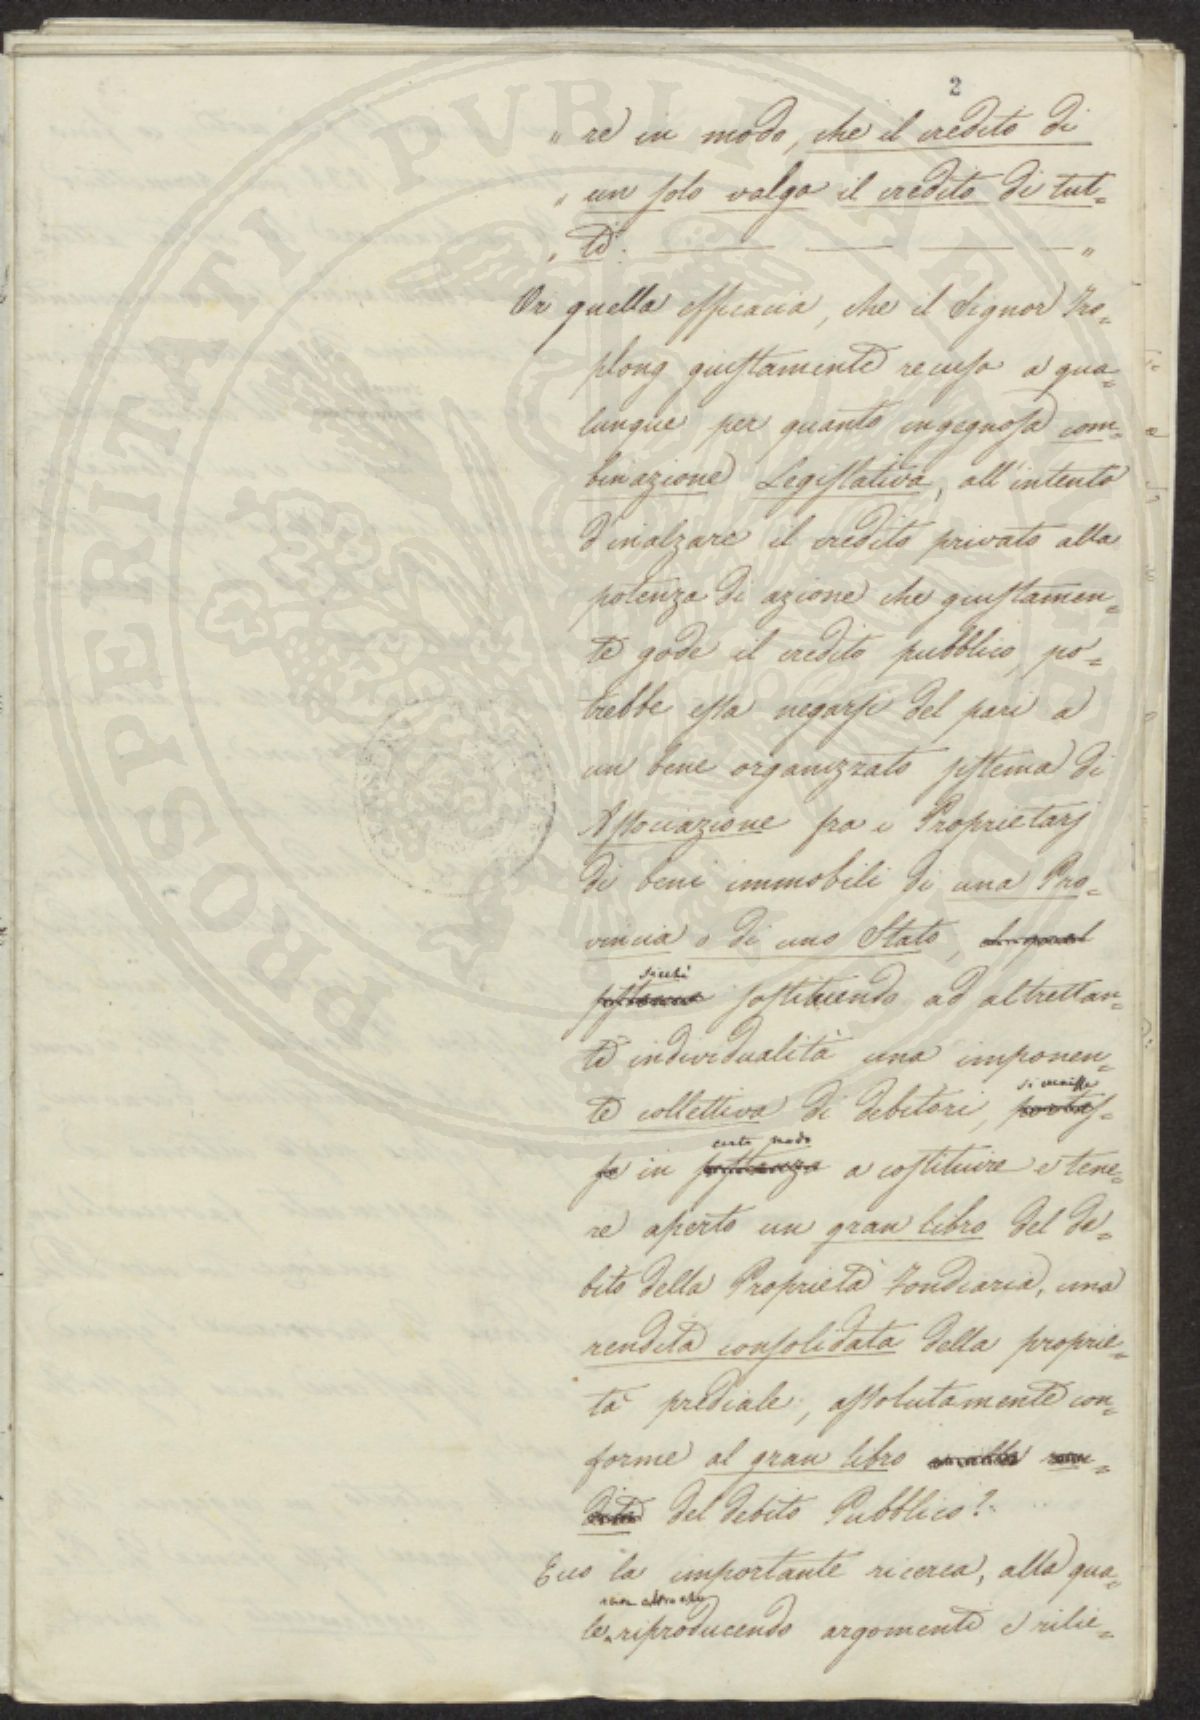 2
„ re in modo, che il credito di
„ un solo valga il credito di tut=
„ ti. „
Or quella efficacia, che il Signor Tro=
plong giustamente recusa a qua=
lunque per quanto ingegnosa com=
binazione Legislativa, all'intento
d'inalzare il credito privato alla
potenza di azione che giustamen=
te gode il credito pubblico, po=
trebbe essa negarsi del pari a
un bene organizzato sistema di
Associazione fra i Proprietarj
di beni immobili di una Pro=
vincia o di uno Stato, il qual
sicchè
sistema sostituendo ad altrettan=
te individualità una imponen=
si venisse
te collettiva di debitori, portas=
certo modo
se in sostanza a costituire e tene=
re aperto un gran libro del de=
bito della Proprietà Fondiaria, una
rendita consolidata della proprie=
tà prediale, assolutamente con=
forme al gran libro ren=
dita del debito Pubblico?
Ecco la importante ricerca, alla qua=
non altro che
le riproducendo argomenti e rilie=
PROSPERITATI PUBLICAE